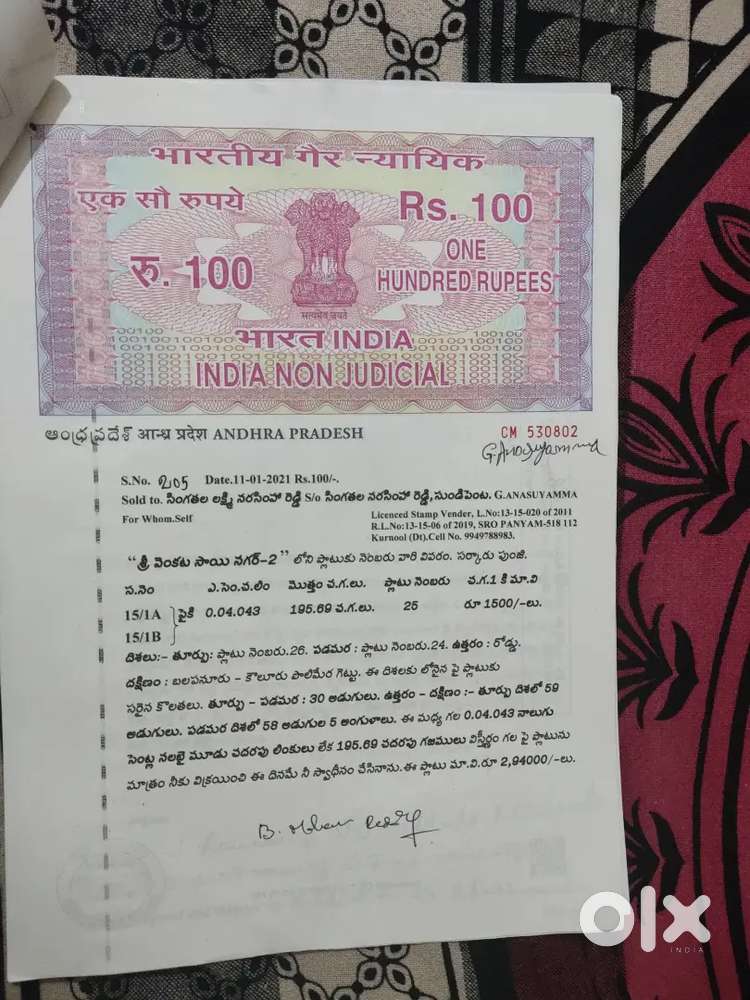 भारतीय गैर न्यायिक
एक सौ रुपये
Rs. 100
रु. 100
ONE
HUNDRED RUPEES
सत्यमेव जयते
भारत INDIA
INDIA NON JUDICIAL
ఆంధ్రప్రదేశ్ आन्ध्र प्रदेश ANDHRA PRADESH
CM 530802
G.Anasuyamma
S.No. 205 Date.11-01-2021 Rs.100/-.
Sold to. సింగతల లక్ష్మి నరసింహా రెడ్డి S/o సింగతల నరసింహా రెడ్డి,సుండిపెంట. G.ANASUYAMMA
For Whom.Self
Licenced Stamp Vender, L.No:13-15-020 of 2011
R.L.No:13-15-06 of 2019, SRO PANYAM-518 112
Kurnool (Dt).Cell No. 9949788983.
"శ్రీ వెంకట సాయి నగర్-2" లోని ప్లాటుకు నెంబరు వారి వివరం. సర్కారు పుంజి.
స.నెం ఎ.సెం.చ.లిం మొత్తం చ.గ.లు. ప్లాటు నెంబరు చ.గ.1 కి మా.వి
15/1A పైకి 0.04.043 195.69 చ.గ.లు. 25 రూ 1500/-లు.
15/1B
దిశలు:- తూర్పు: ప్లాటు నెంబరు.26. పడమర : ప్లాటు నెంబరు.24. ఉత్తరం : రోడ్డు.
దక్షిణం : బలపనూరు - కౌలూరు పొలిమేర గెట్టు. ఈ దిశలకు లోనైన పై ప్లాటుకు
సరైన కొలతలు. తూర్పు - పడమర : 30 అడుగులు. ఉత్తరం - దక్షిణం :- తూర్పు దిశలో 59
అడుగులు. పడమర దిశలో 58 అడుగుల 5 అంగుళాలు. ఈ మధ్య గల 0.04.043 నాలుగు
సెంట్ల నలభై మూడు చదరపు లింకులు లేక 195.69 చదరపు గజములు విస్తీర్ణం గల పై ప్లాటును
మాత్రం నీకు విక్రయించి ఈ దినమే నీ స్వాధీనం చేసినాను.ఈ ప్లాటు మా.వి.రూ 2,94000/-లు.
olx
INDIA